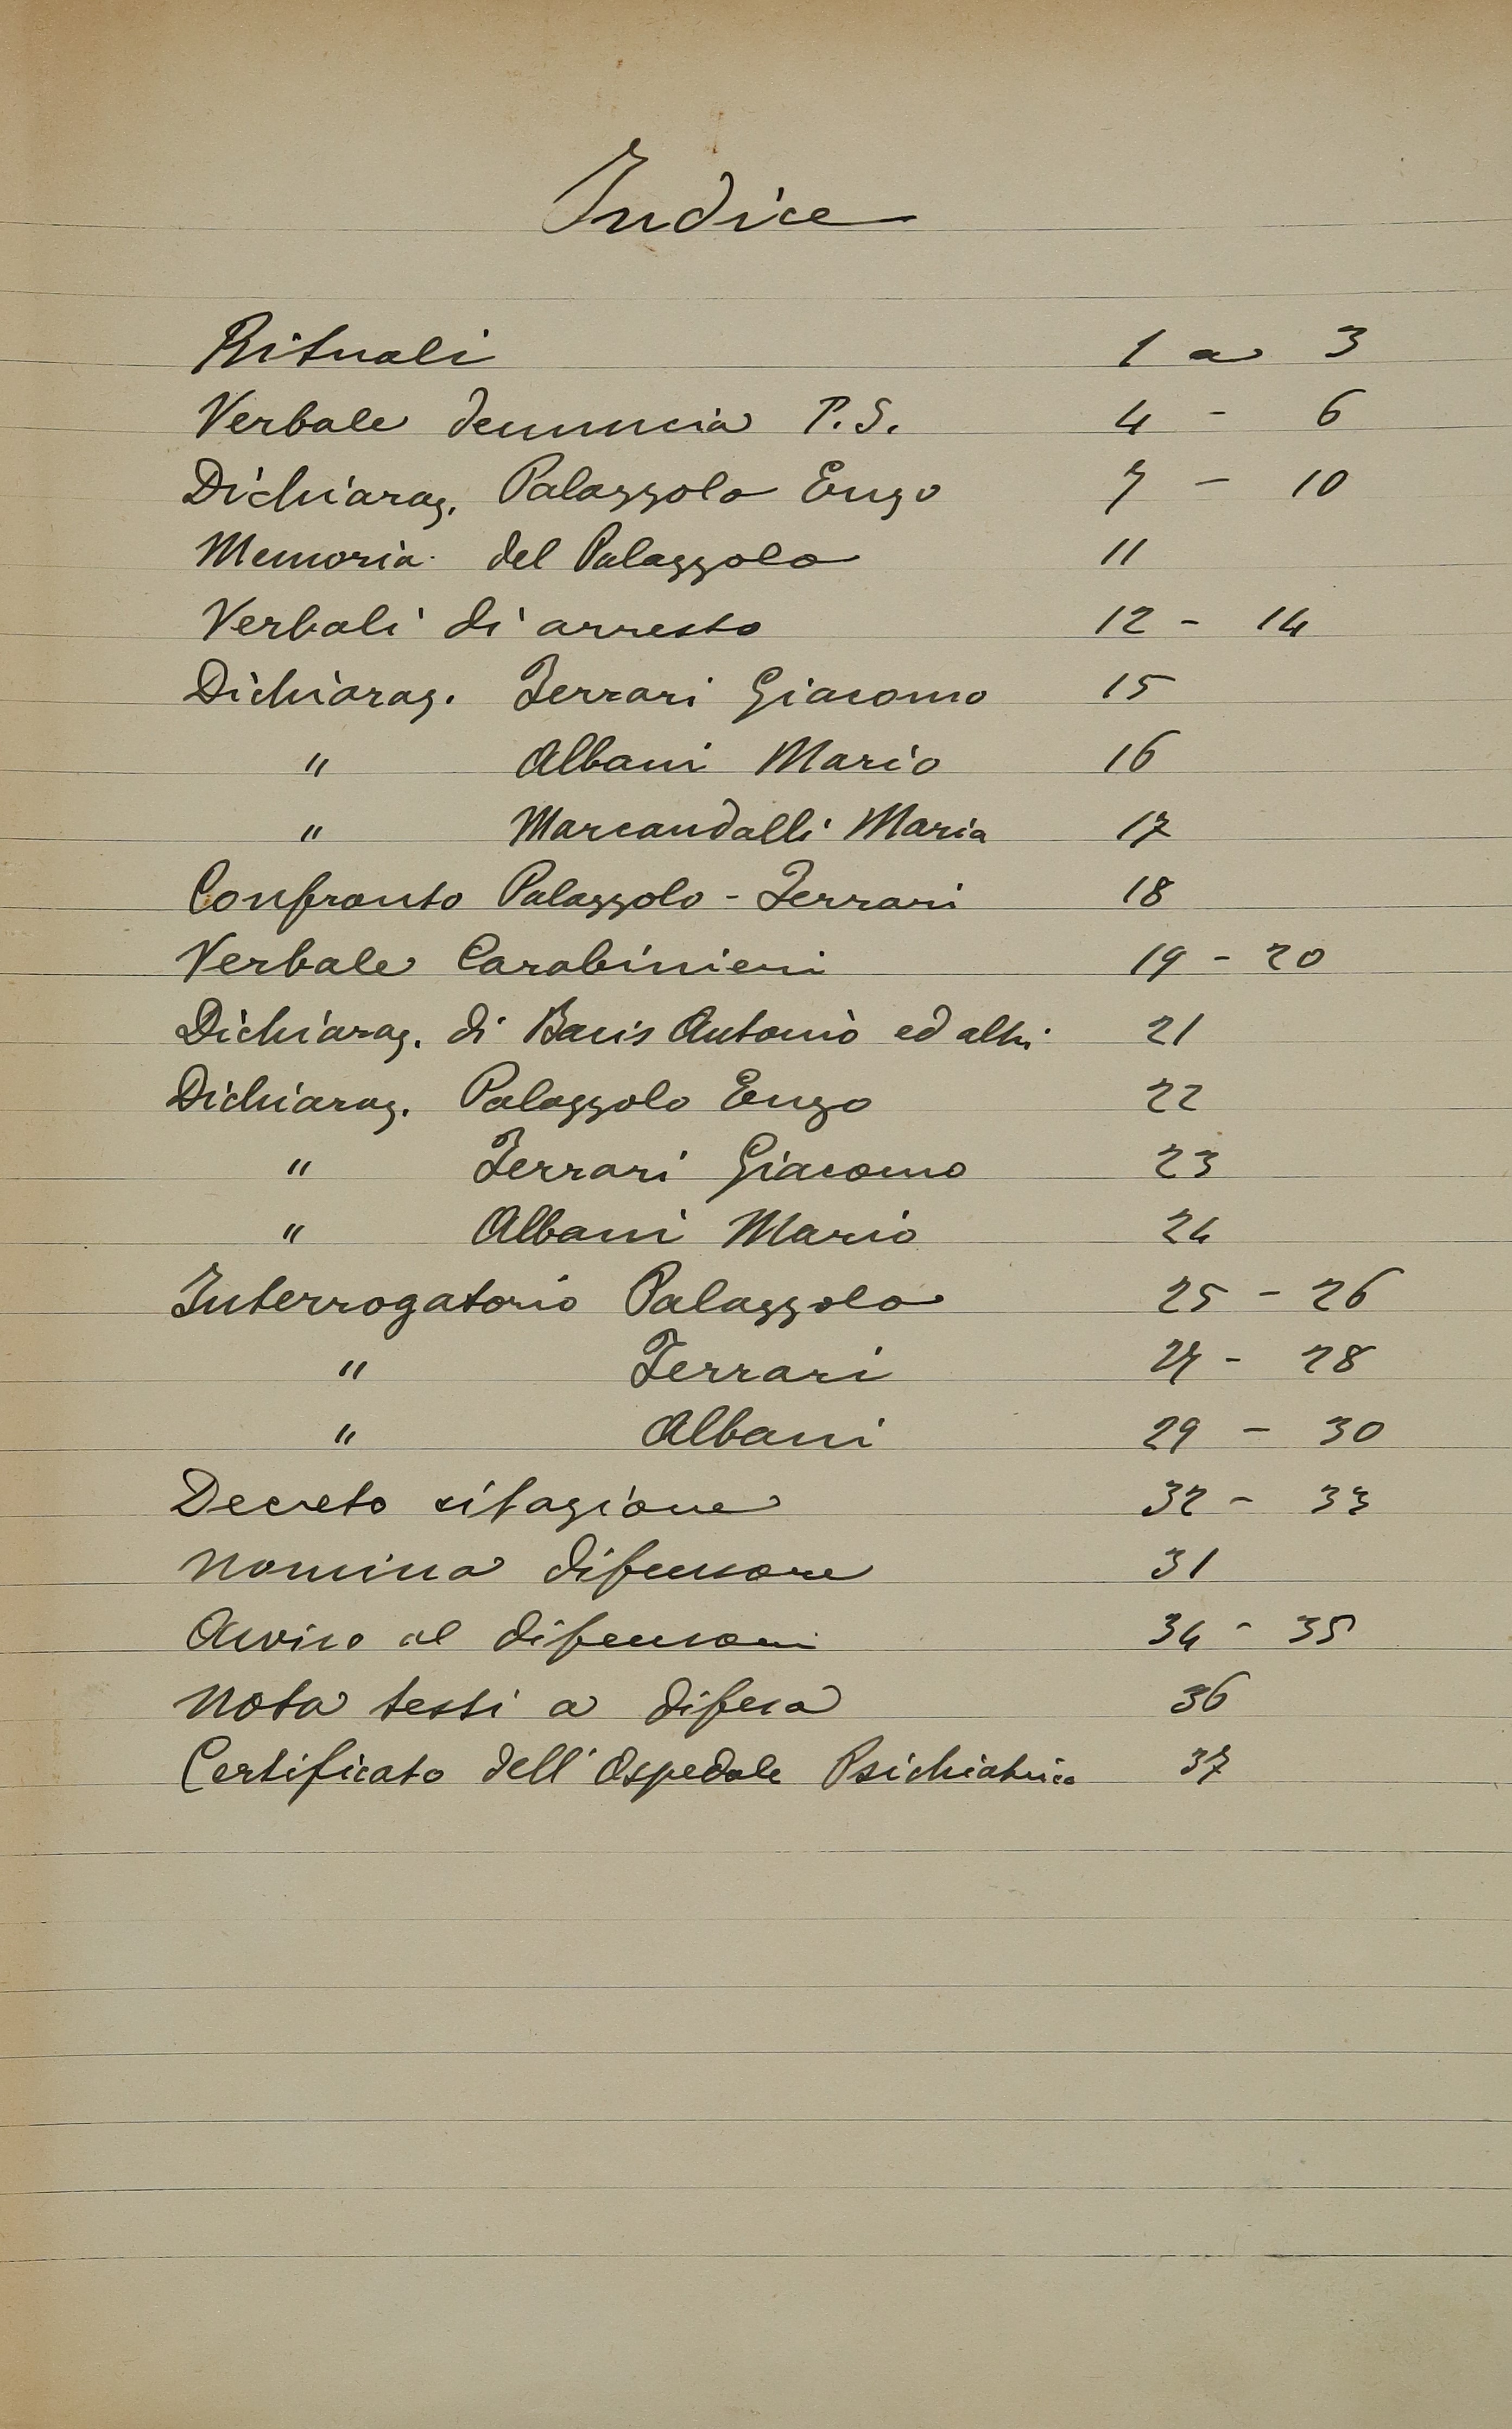 Indice
Rituali 1 a 3
Verbale denuncia P.S. 4 - 6
Dichiaraz. Palazzolo Enzo 7 - 10
Memoria del Palazzolo 11
Verbali di arresto 12 - 14
Dichiaraz. Ferrari Giacomo 15
" Albani Mario 16
" Marcandalli Maria 17
Confronto Palazzolo - Ferrari 18
Verbale Carabinieri 19 - 20
Dichiaraz. di Bacis Antonio ed altri 21
Dichiaraz. Palazzolo Enzo 22
" Ferrari Giacomo 23
" Albani Mario 24
Interrogatorio Palazzolo 25 - 26
" Ferrari 27 - 28
" Albani 29 - 30
Decreto citazione 32 - 33
Nomina difensore 31
Avviso al difensori 34 - 35
Nota testi a difesa 36
Certificato dell'Ospedale Psichiatrico 37